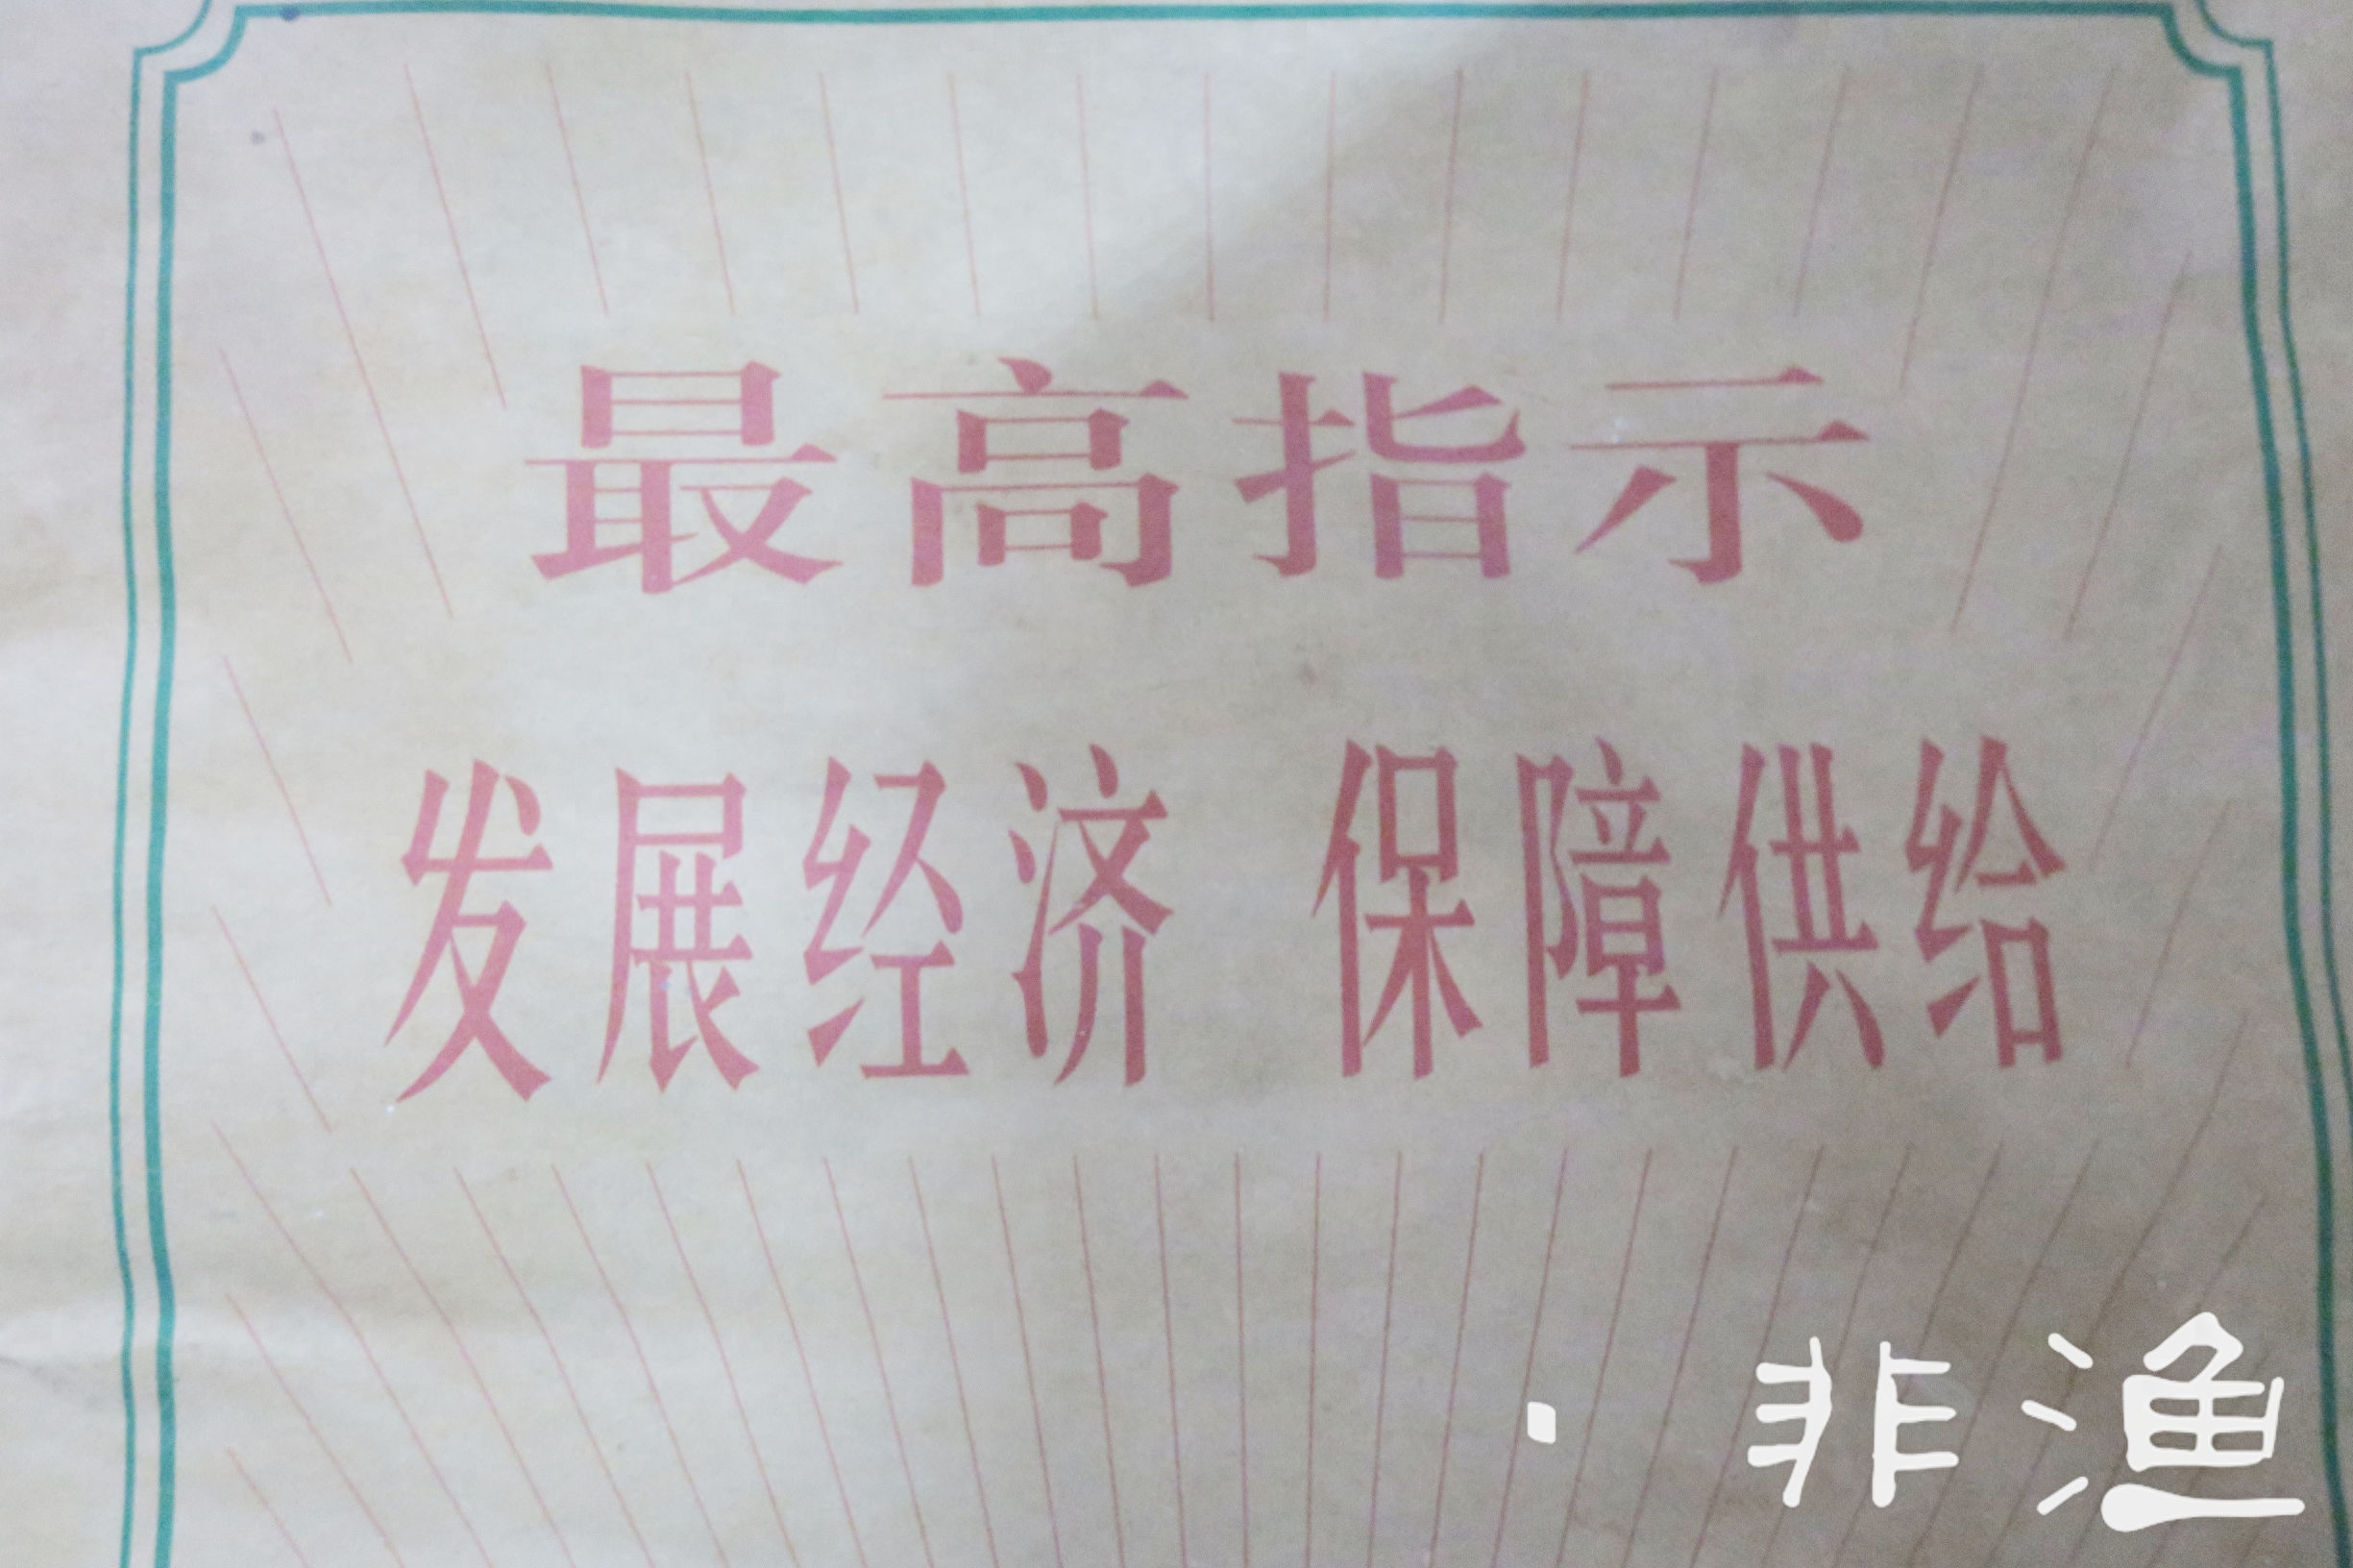 最高指示
发展经济 保障供给
· 非渔